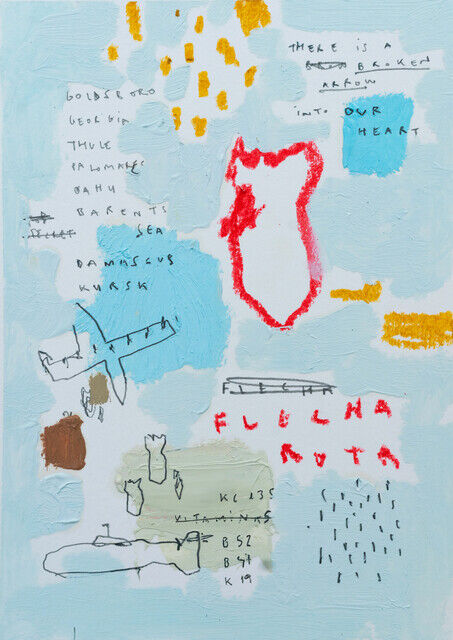 THERE IS A
BROKEN
ARROW
INTO OUR
HEART
GOLDSBORO
GEORGIA
THULE
PALOMARES
OAHU
BARENTS
SEA
SECRET
DAMASCUS
KURSK
FLECHA
FLECHA
ROTA
KC 135
VITAMINAS
B52
B47
K19